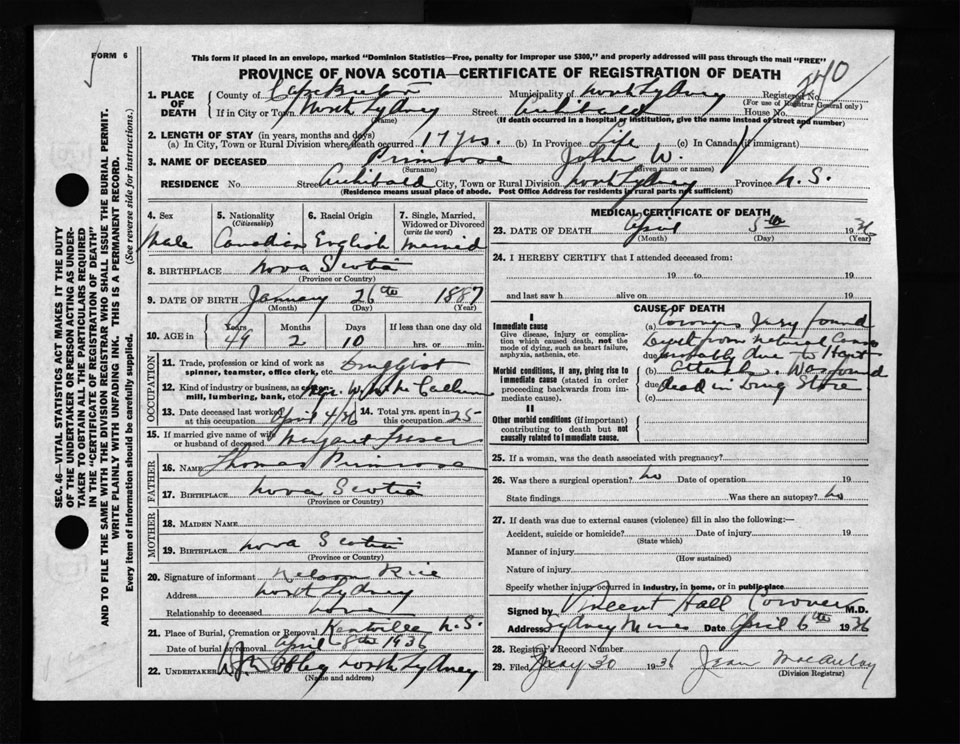 FORM 6
This form if placed in an envelope, marked "Dominion Statistics—Free, penalty for improper use $300," and properly addressed will pass through the mail "FREE"
PROVINCE OF NOVA SCOTIA—CERTIFICATE OF REGISTRATION OF DEATH
240
1. PLACE OF DEATH County of Cape Breton Municipality of North Sydney Registered No.
(For use of Registrar General only)
If in City or Town North Sydney (Name) Street Archibald House No.
(If death occurred in a hospital or institution, give the name instead of street and number)
2. LENGTH OF STAY (in years, months and days)
(a) In City, Town or Rural Division where death occurred 17 yrs. (b) In Province Life (c) In Canada (if immigrant)
3. NAME OF DECEASED Primrose John W.
(Surname) (Given name or names)
RESIDENCE No. Street Archibald City, Town or Rural Division North Sydney Province N. S.
(Residence means usual place of abode. Post Office Address for residents in rural parts not sufficient)
SEC. 46—VITAL STATISTICS ACT MAKES IT THE DUTY
OF THE UNDERTAKER OR PERSON ACTING AS UNDER-
TAKER TO OBTAIN ALL THE PARTICULARS REQUIRED
IN THE "CERTIFICATE OF REGISTRATION OF DEATH"
AND TO FILE THE SAME WITH THE DIVISION REGISTRAR WHO SHALL ISSUE THE BURIAL PERMIT.
WRITE PLAINLY WITH UNFADING INK. THIS IS A PERMANENT RECORD.
Every item of information should be carefully supplied. (See reverse side for instructions.)
4. Sex 5. Nationality (Citizenship) 6. Racial Origin 7. Single, Married, Widowed or Divorced (write the word)
Male Canadian English Married
8. BIRTHPLACE Nova Scotia
(Province or Country)
9. DATE OF BIRTH January 26th 1887
(Month) (Day) (Year)
10. AGE in Years Months Days If less than one day old
49 2 10 hrs. or min.
OCCUPATION
11. Trade, profession or kind of work as spinner, teamster, office clerk, etc. Druggist
12. Kind of industry or business, as mill, lumbering, bank, etc. Mgr.
13. Date deceased last worked at this occupation April 4/36 14. Total yrs. spent in this occupation 25
15. If married give name of wife or husband of deceased Margaret Fraser
FATHER
16. NAME Thomas Primrose
17. BIRTHPLACE Nova Scotia
(Province or Country)
MOTHER
18. MAIDEN NAME
19. BIRTHPLACE Nova Scotia
(Province or Country)
20. Signature of informant Nelson Rice
Address North Sydney
Relationship to deceased None
21. Place of Burial, Cremation or Removal Kentville N.S.
Date of burial or removal April 8th 1936
22. UNDERTAKER North Sydney
(Name and address)
MEDICAL CERTIFICATE OF DEATH
23. DATE OF DEATH April 5th 1936
(Month) (Day) (Year)
24. I HEREBY CERTIFY that I attended deceased from:
19 to 19
and last saw h alive on 19
CAUSE OF DEATH
I
Immediate cause
Give disease, injury or complication which caused death, not the mode of dying, such as heart failure, asphyxia, asthenia, etc.
Morbid conditions, if any, giving rise to immediate cause (stated in order proceeding backwards from immediate cause).
II
Other morbid conditions (if important) contributing to death but not causally related to immediate cause.
(a) Coroners Jury found
death from natural Causes
due probably due to Heart
(b) attack. Was found
due dead in Drug Store
(c)
25. If a woman, was the death associated with pregnancy?
26. Was there a surgical operation? No Date of operation 19
State findings Was there an autopsy? No
27. If death was due to external causes (violence) fill in also the following:—
Accident, suicide or homicide? Date of injury 19
(State which)
Manner of injury
(How sustained)
Nature of injury
Specify whether injury occurred in industry, in home, or in public place
Signed by Vincent Hall Coroner M.D.
Address Sydney Mines Date April 6th 1936
28. Registrar's Record Number
29. Filed May 30 1936 Jean MacAulay
(Division Registrar)